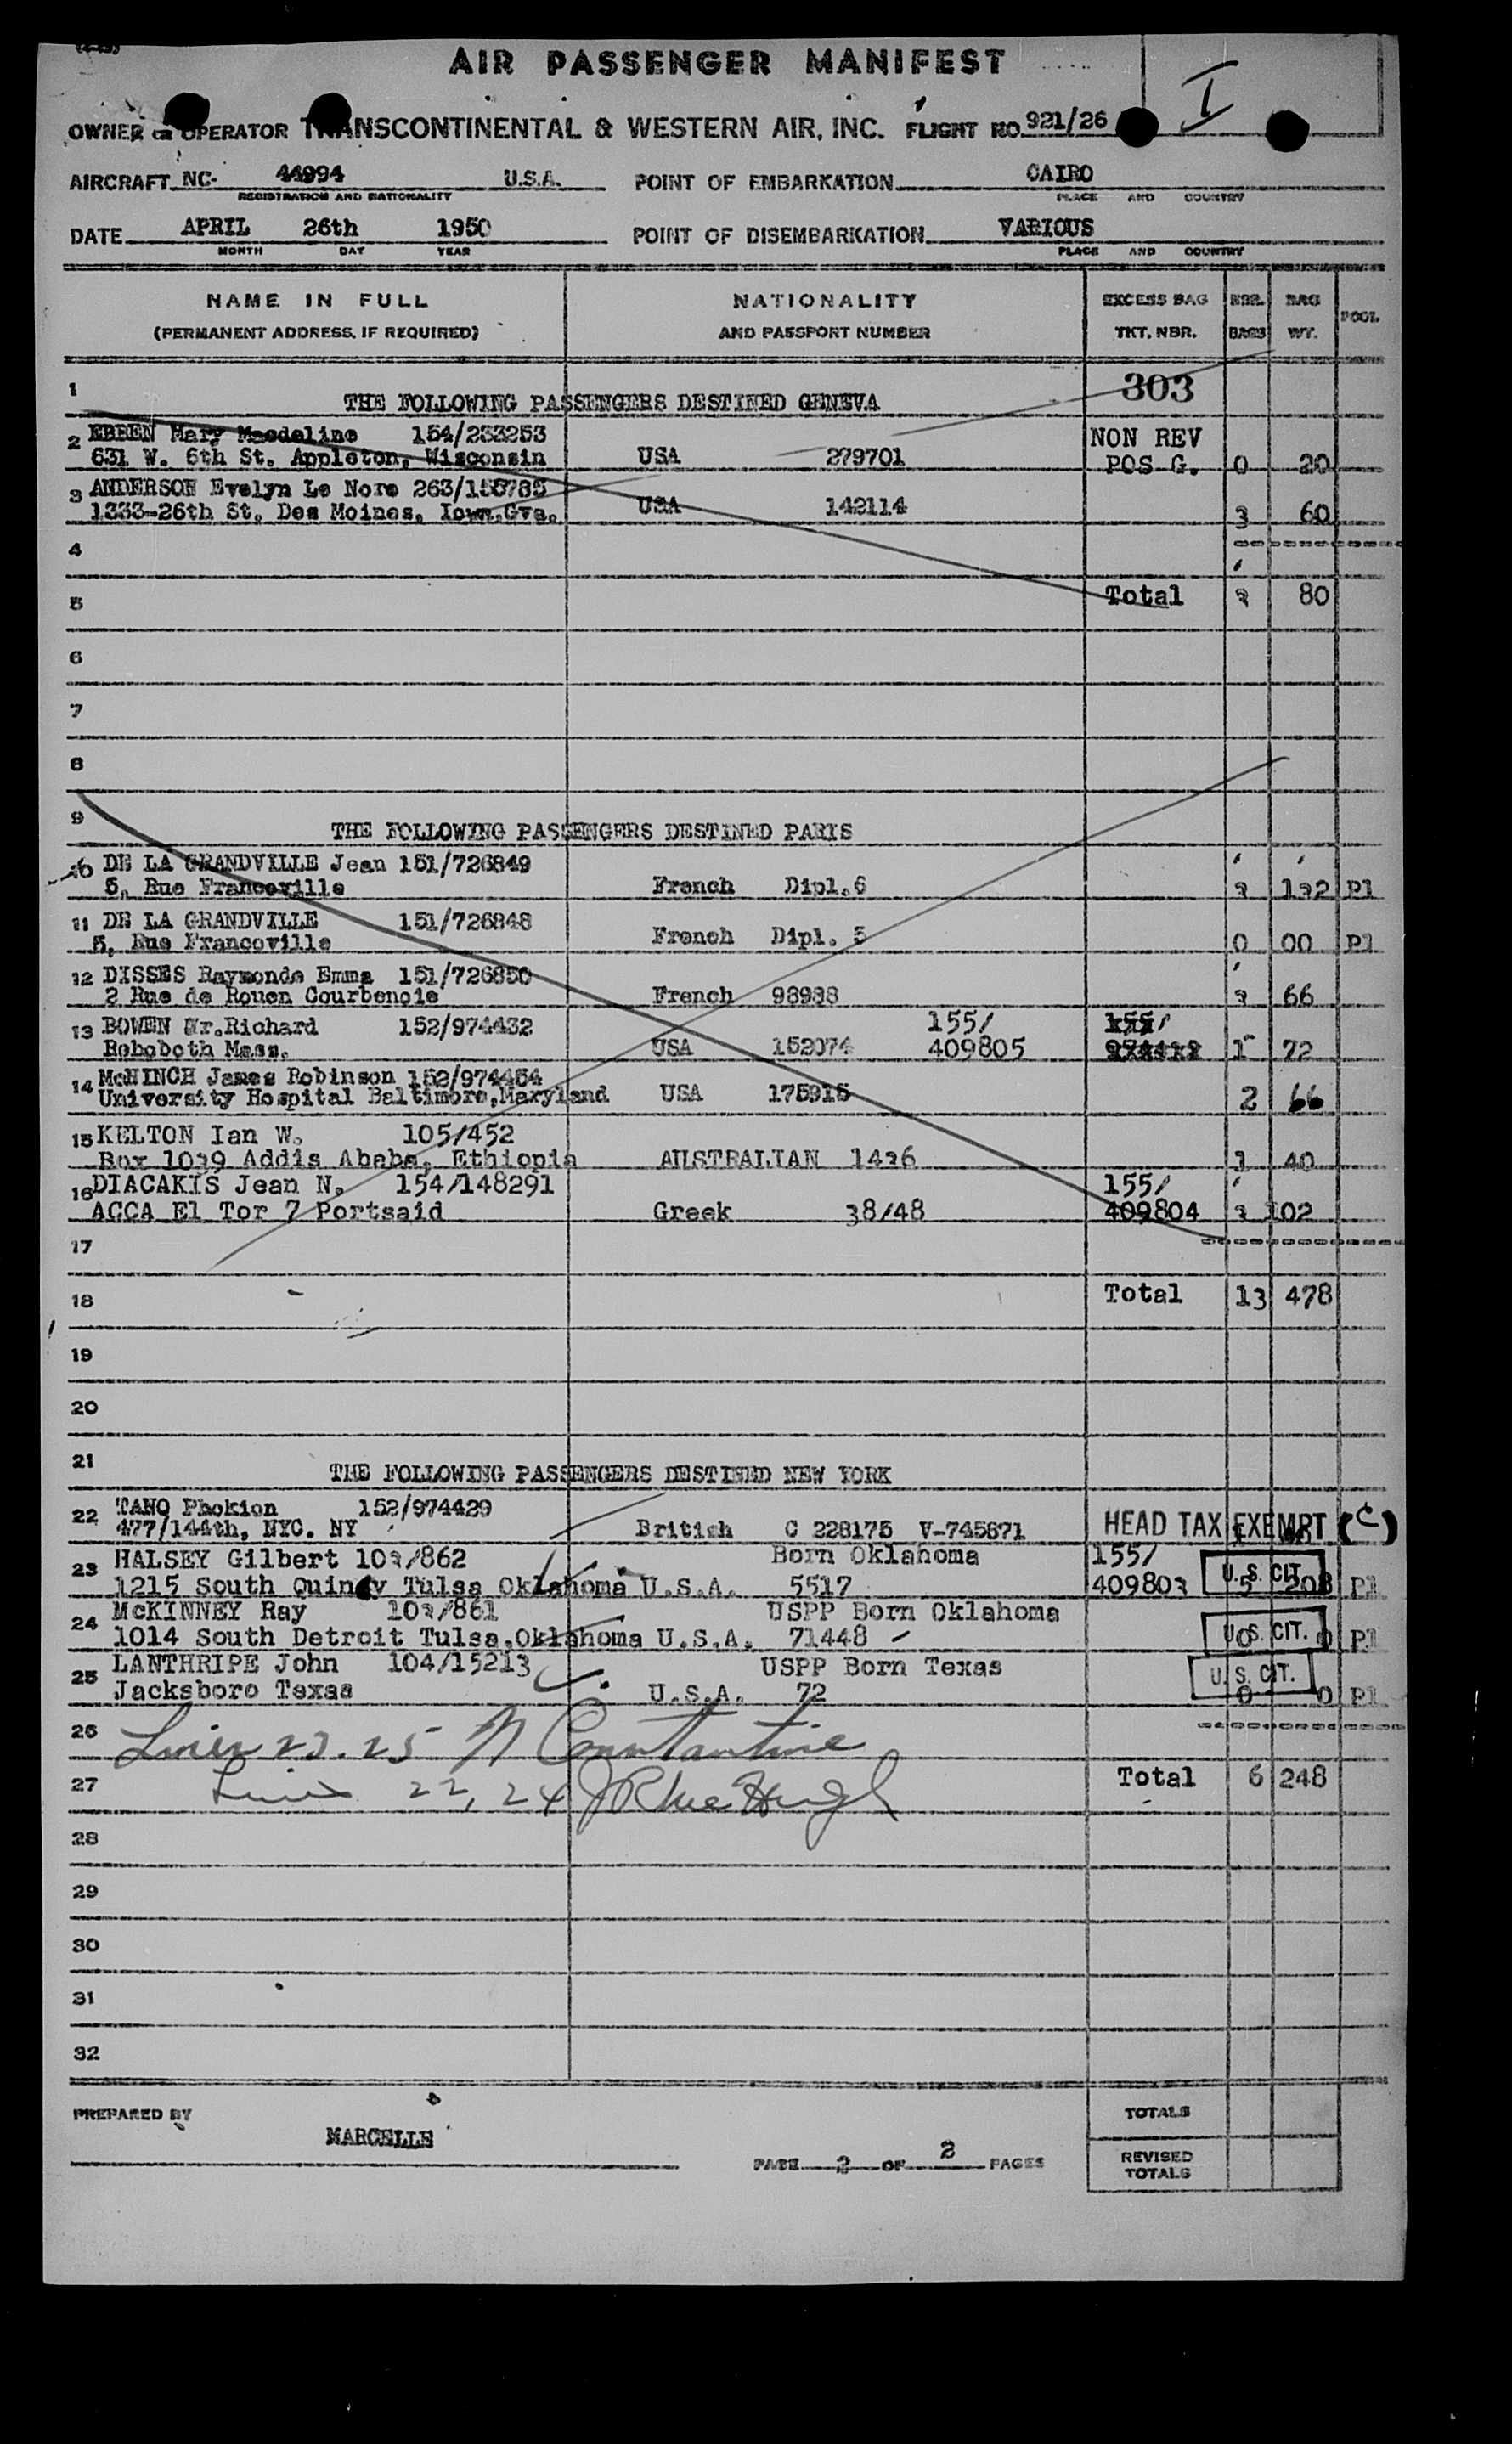 AIR PASSENGER MANIFEST
I
OWNER OR OPERATOR TRANSCONTINENTAL & WESTERN AIR, INC. FLIGHT NO. 921/26
AIRCRAFT NC- 44994 U.S.A. POINT OF EMBARKATION CAIRO
REGISTRATION AND NATIONALITY PLACE AND COUNTRY
DATE APRIL 26th 1950 POINT OF DISEMBARKATION VARIOUS
MONTH DAY YEAR PLACE AND COUNTRY
NAME IN FULL NATIONALITY EXCESS BAG NBR. BAG POOL
(PERMANENT ADDRESS, IF REQUIRED) AND PASSPORT NUMBER TKT. NBR. BAGS WT.
1 303
THE FOLLOWING PASSENGERS DESTINED GENEVA
2 EBBEN Mary 154/233253 NON REV
631 W. 6th St. Appleton, Wisconsin USA 279701 POS G. 0 20
3 ANDERSON Evelyn Le Nore
1333-26th St. Des Moines, USA 142114 3 60
4
5 Total 3 80
6
7
8
9
THE FOLLOWING PASSENGERS DESTINED PARIS
10 DE LA GRANDVILLE Jean 151/726849
5, Rue Francoville French Dipl.6 3 132 P1
11 DE LA GRANDVILLE 151/726848
5, Rue Francoville French Dipl. 5 0 00 P1
12 DISSES Raymonde Emma 151/726850
2 Rue de Rouen Courbenoie French 98988 3 66
13 BOWEN Mr.Richard 152/974432 155/ 155/
Rehoboth Mass. USA 152074 409805 1 72
14 McNINCH James Robinson 152/974454
University Hospital Baltimore,Maryland USA 175915 2 66
15 KELTON Ian W. 105/452
Box 1039 Addis Ababa, Ethiopia AUSTRALIAN 1436 3 40
16 DIACAKIS Jean N. 154/148291 155/
ACCA El Tor 7 Portsaid Greek 38/48 409804 3 102
17
18 Total 13 478
19
20
21
THE FOLLOWING PASSENGERS DESTINED NEW YORK
22 TANO Phokion 152/974429
477/144th, NYC. NY British C 228175 V-745671 HEAD TAX EXEMPT (C)
23 HALSEY Gilbert 103/862 Born Oklahoma 155/
1215 South Quincy Tulsa Oklahoma U.S.A. 5517 409803 U. S. CIT. 5 208 P1
24 McKINNEY Ray 103/861 USPP Born Oklahoma
1014 South Detroit Tulsa,Oklahoma U.S.A. 71448 U. S. CIT. 0 0 P1
25 LANTHRIPE John 104/15213 USPP Born Texas
Jacksboro Texas U.S.A. 72 U. S. CIT. 0 0 P1
26 Lines 23.25 N Constantine
27 Lines 22, 24 Total 6 248
28
29
30
31
32
PREPARED BY MARCELLE TOTALS
PAGE 2 OF 2 PAGES REVISED
TOTALS